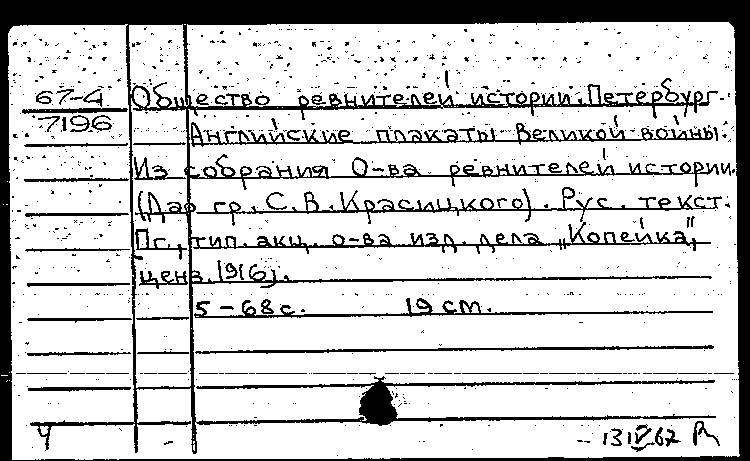 67-4 Общество ревнителей истории. Петербург.
7196 Английские плакаты великой войны.
Из собрания О-ва ревнителей истории.
(Дар гр. С. В. Красицкого). Рус. текст.
Пг., тип. акц. о-ва изд. дела „Копейка",
ценз. 1916).
5-68 с. 19 см.
Ч - 13 IV 67